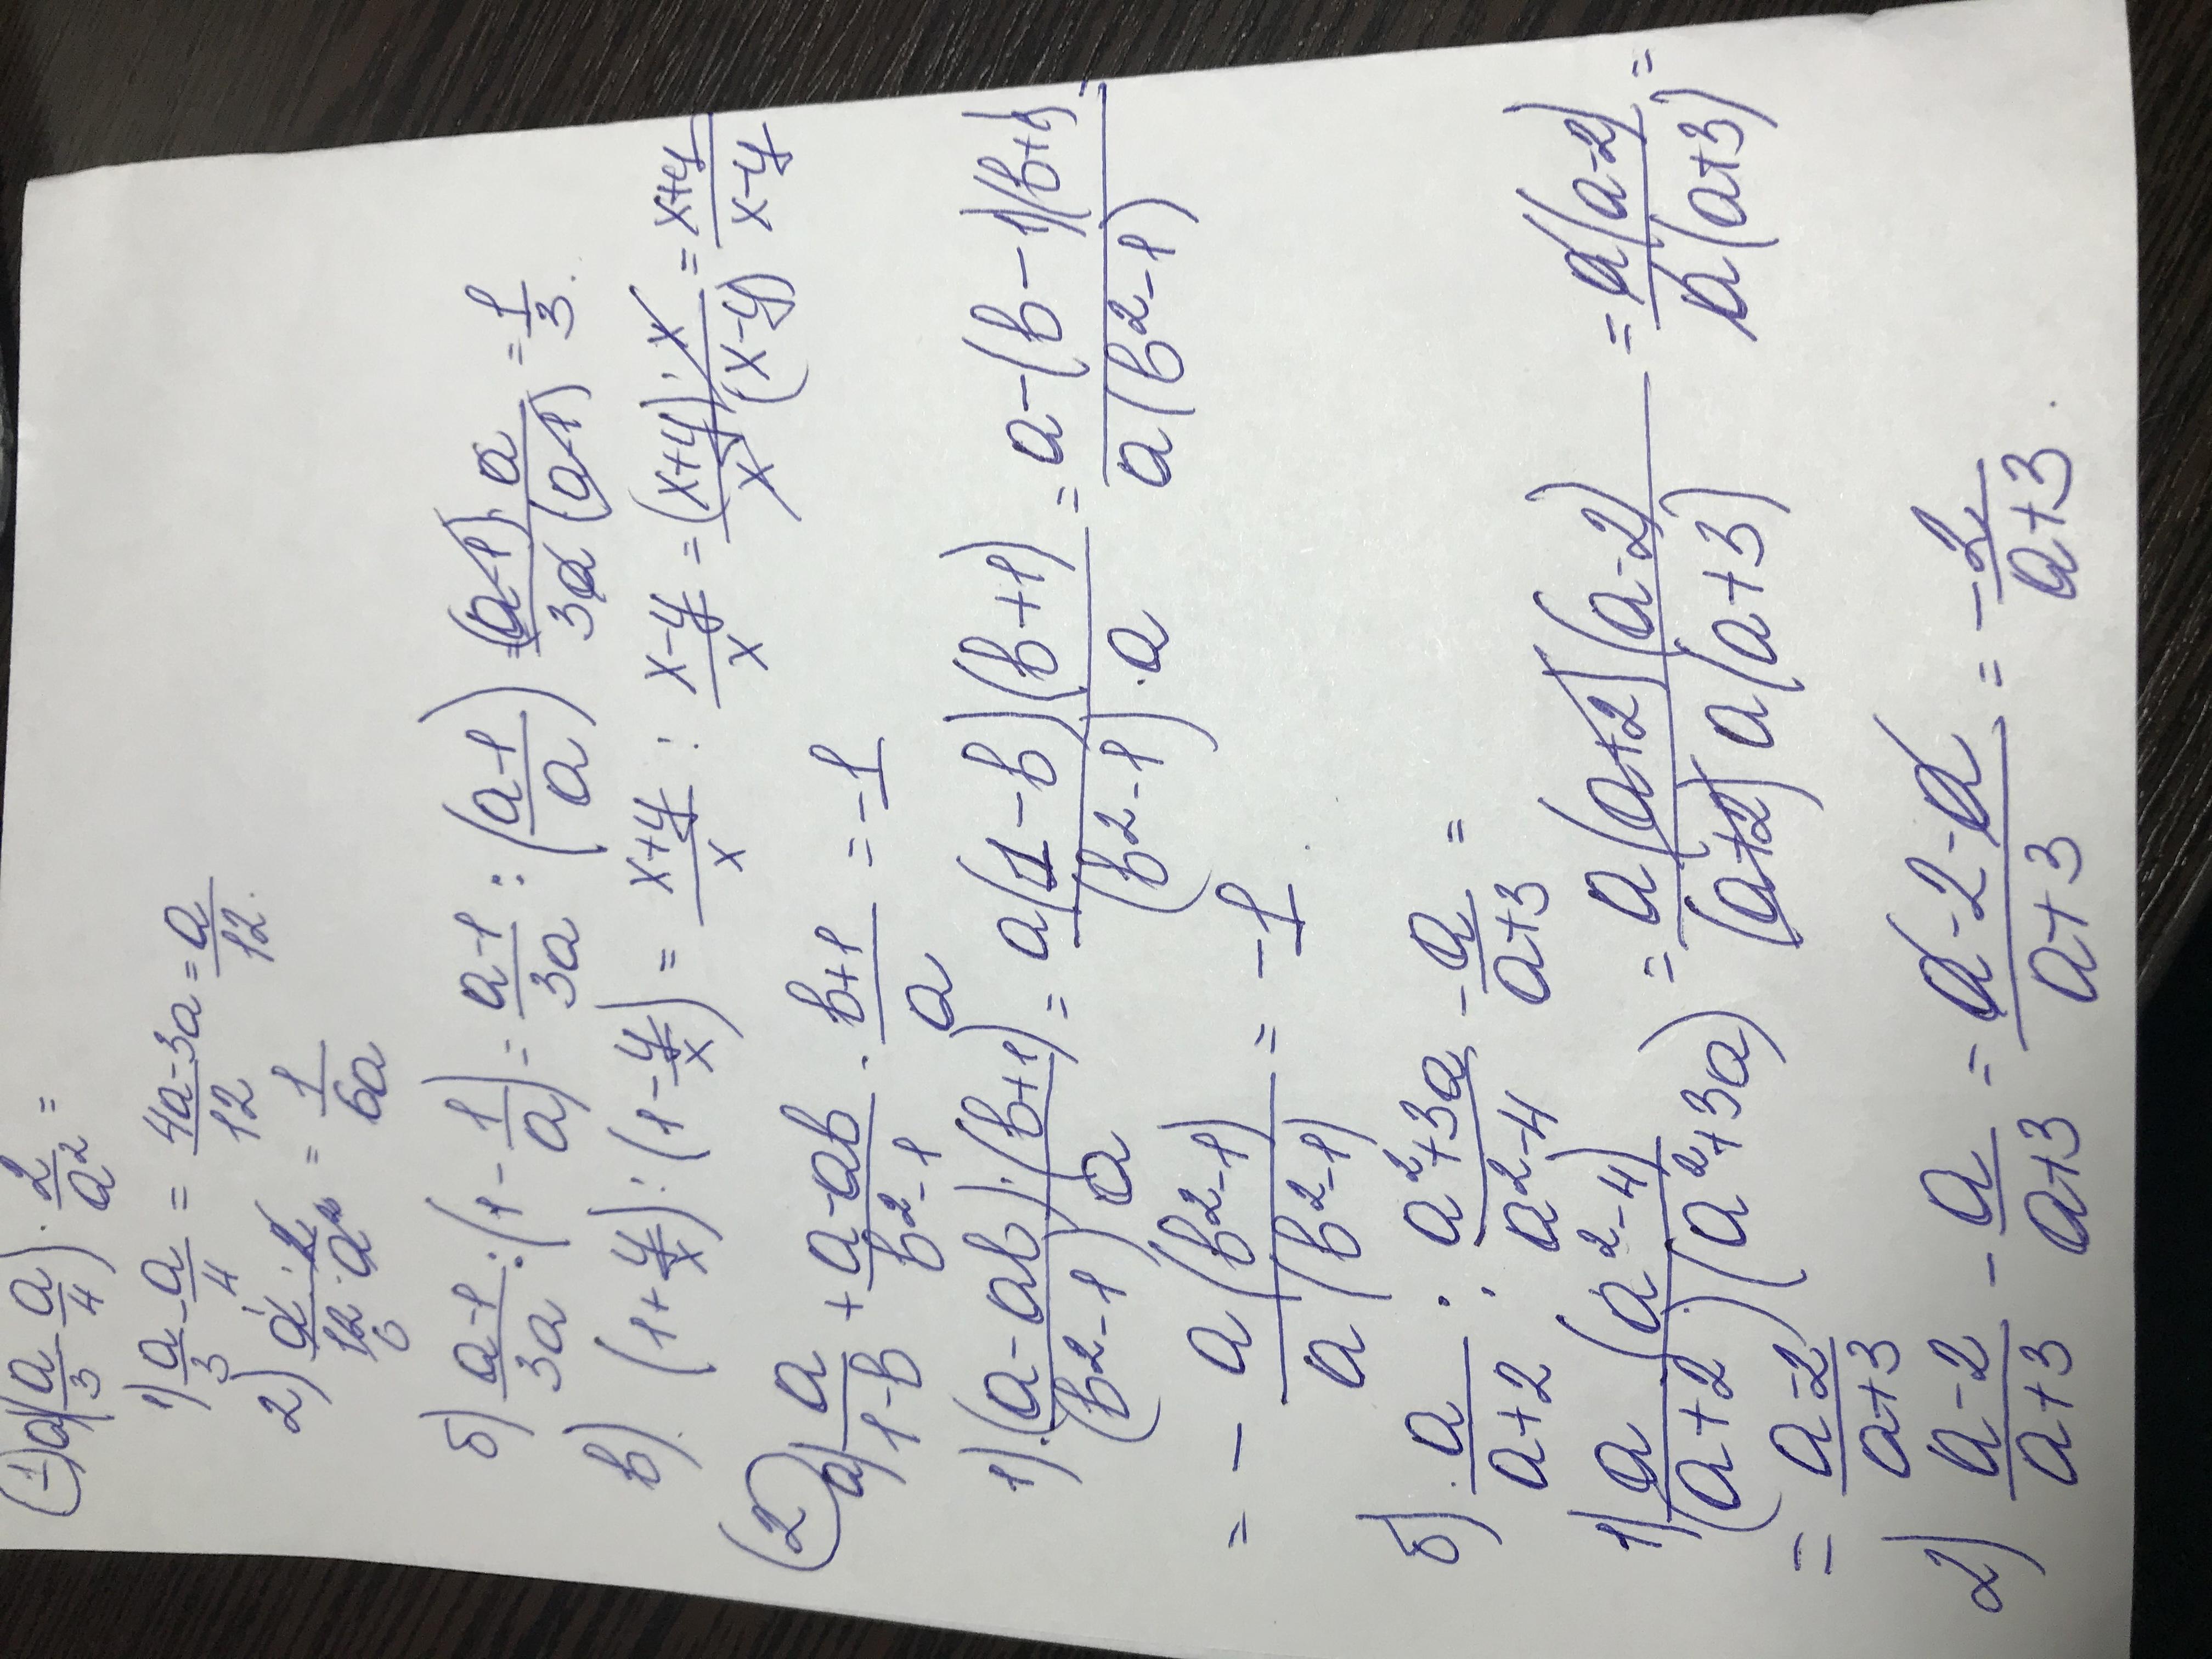 1) а) (a/3 - a/4) · 2/a² =
1) a/3 - a/4 = (4a-3a)/12 = a/12.
2) (a · 2)/(12 · a²) = 1/6a
б) (a-1)/3a : (1 - 1/a) = (a-1)/3a : ((a-1)/a) = ((a-1) · a)/(3a(a-1)) = 1/3.
в) (1 + y/x) : (1 - y/x) = (x+y)/x : (x-y)/x = ((x+y) · x)/(x(x-y)) = (x+y)/(x-y)
2) а) a/(1-b) + (a-ab)/(b²-1) · (b+1)/a = -1
1) ((a-ab) · (b+1))/((b²-1) a) = (a(1-b)(b+1))/((b²-1) · a) = (a-(b-1)(b+1))/(a(b²-1)) =
= - (a(b²-1))/(a(b²-1)) = -1
б) a/(a+2) : (a²+3a)/(a²-4) - a/(a+3) =
1) (a(a²-4))/((a+2)(a²+3a)) = (a(a+2)(a-2))/((a+2)a(a+3)) = (a(a-2))/(a(a+3)) =
= (a-2)/(a+3)
2) (a-2)/(a+3) - a/(a+3) = (a-2-a)/(a+3) = -2/(a+3)